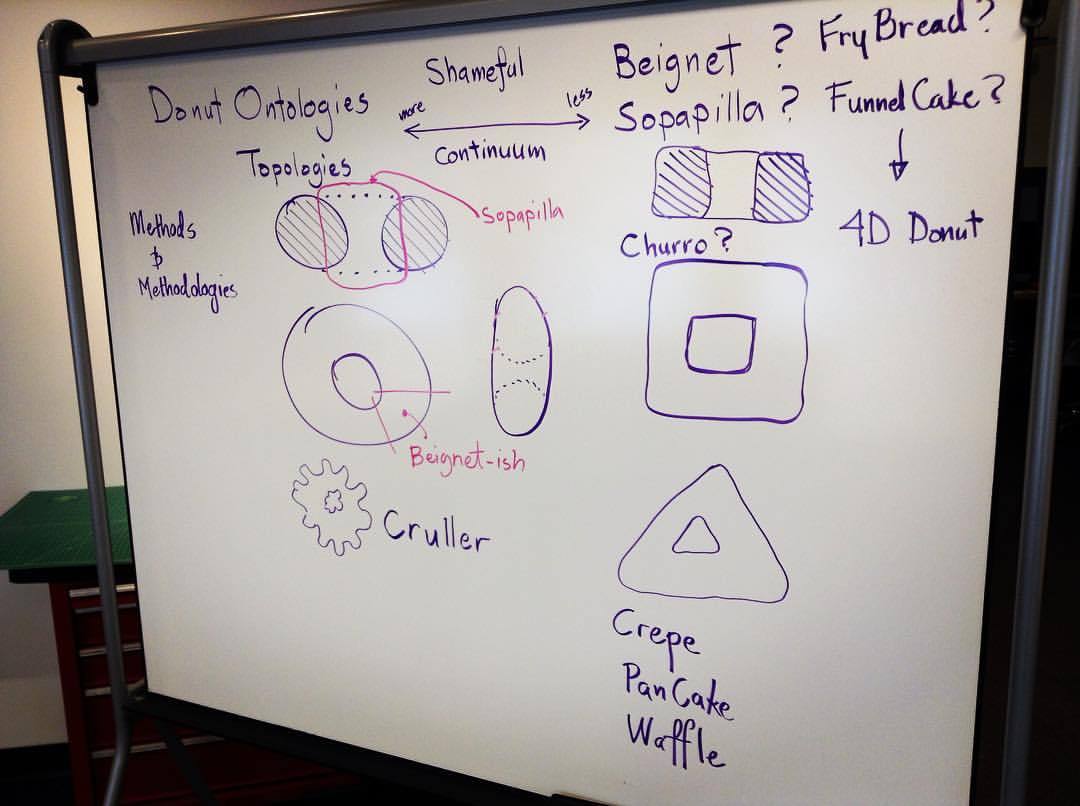 Donut Ontologies
Shameful
more
less
Continuum
Topologies
Sopapilla
Methods
&
Methodologies
Beignet-ish
Cruller
Beignet ? Fry Bread ?
Sopapilla ? Funnel Cake ?
4D Donut
Churro ?
Crepe
PanCake
Waffle